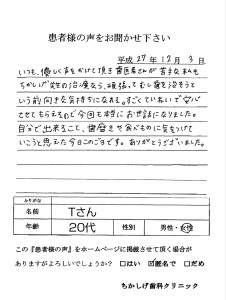 患者様の声をお聞かせ下さい
平成27年12月3日
いつも、優しく声をかけて頂き歯医者さんが苦手な私も
ちかしげ先生の治療なら、頑張ってむし歯を治そうと
いう前向きな気持ちになれる。すごくていねいで安心
させてもらえるので今回も本当にお世話になりました。
自分で出来ること、歯磨きや食べものに気をつけて
いこうと思えた今日このごろです。ありがとうございました。
ふりがな
名前 Tさん
年齢 20代 性別 男性・女性
この『患者様の声』をホームページに掲載させて頂く場合が
ありますがよろしいでしょうか? □はい ☑匿名で □だめ
ちかしげ歯科クリニック